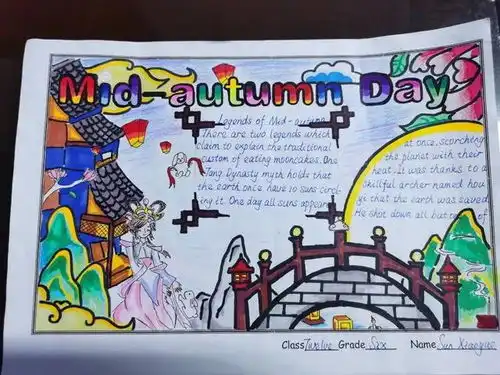 Mid-autumn Day
Legends of Mid-autumn
There are two legends which
claim to explain the traditional
custom of eating mooncakes. One
Tang Dynasty myth holds that
the earth once have 10 suns circl-
ing it. One day all suns appear
at once, scorcheng
the planet with their
heat. It was thanks to a
skillful archer named hou
yi that the earth was saved
He shot down all but of
Class Twelve Grade Six Name Sun